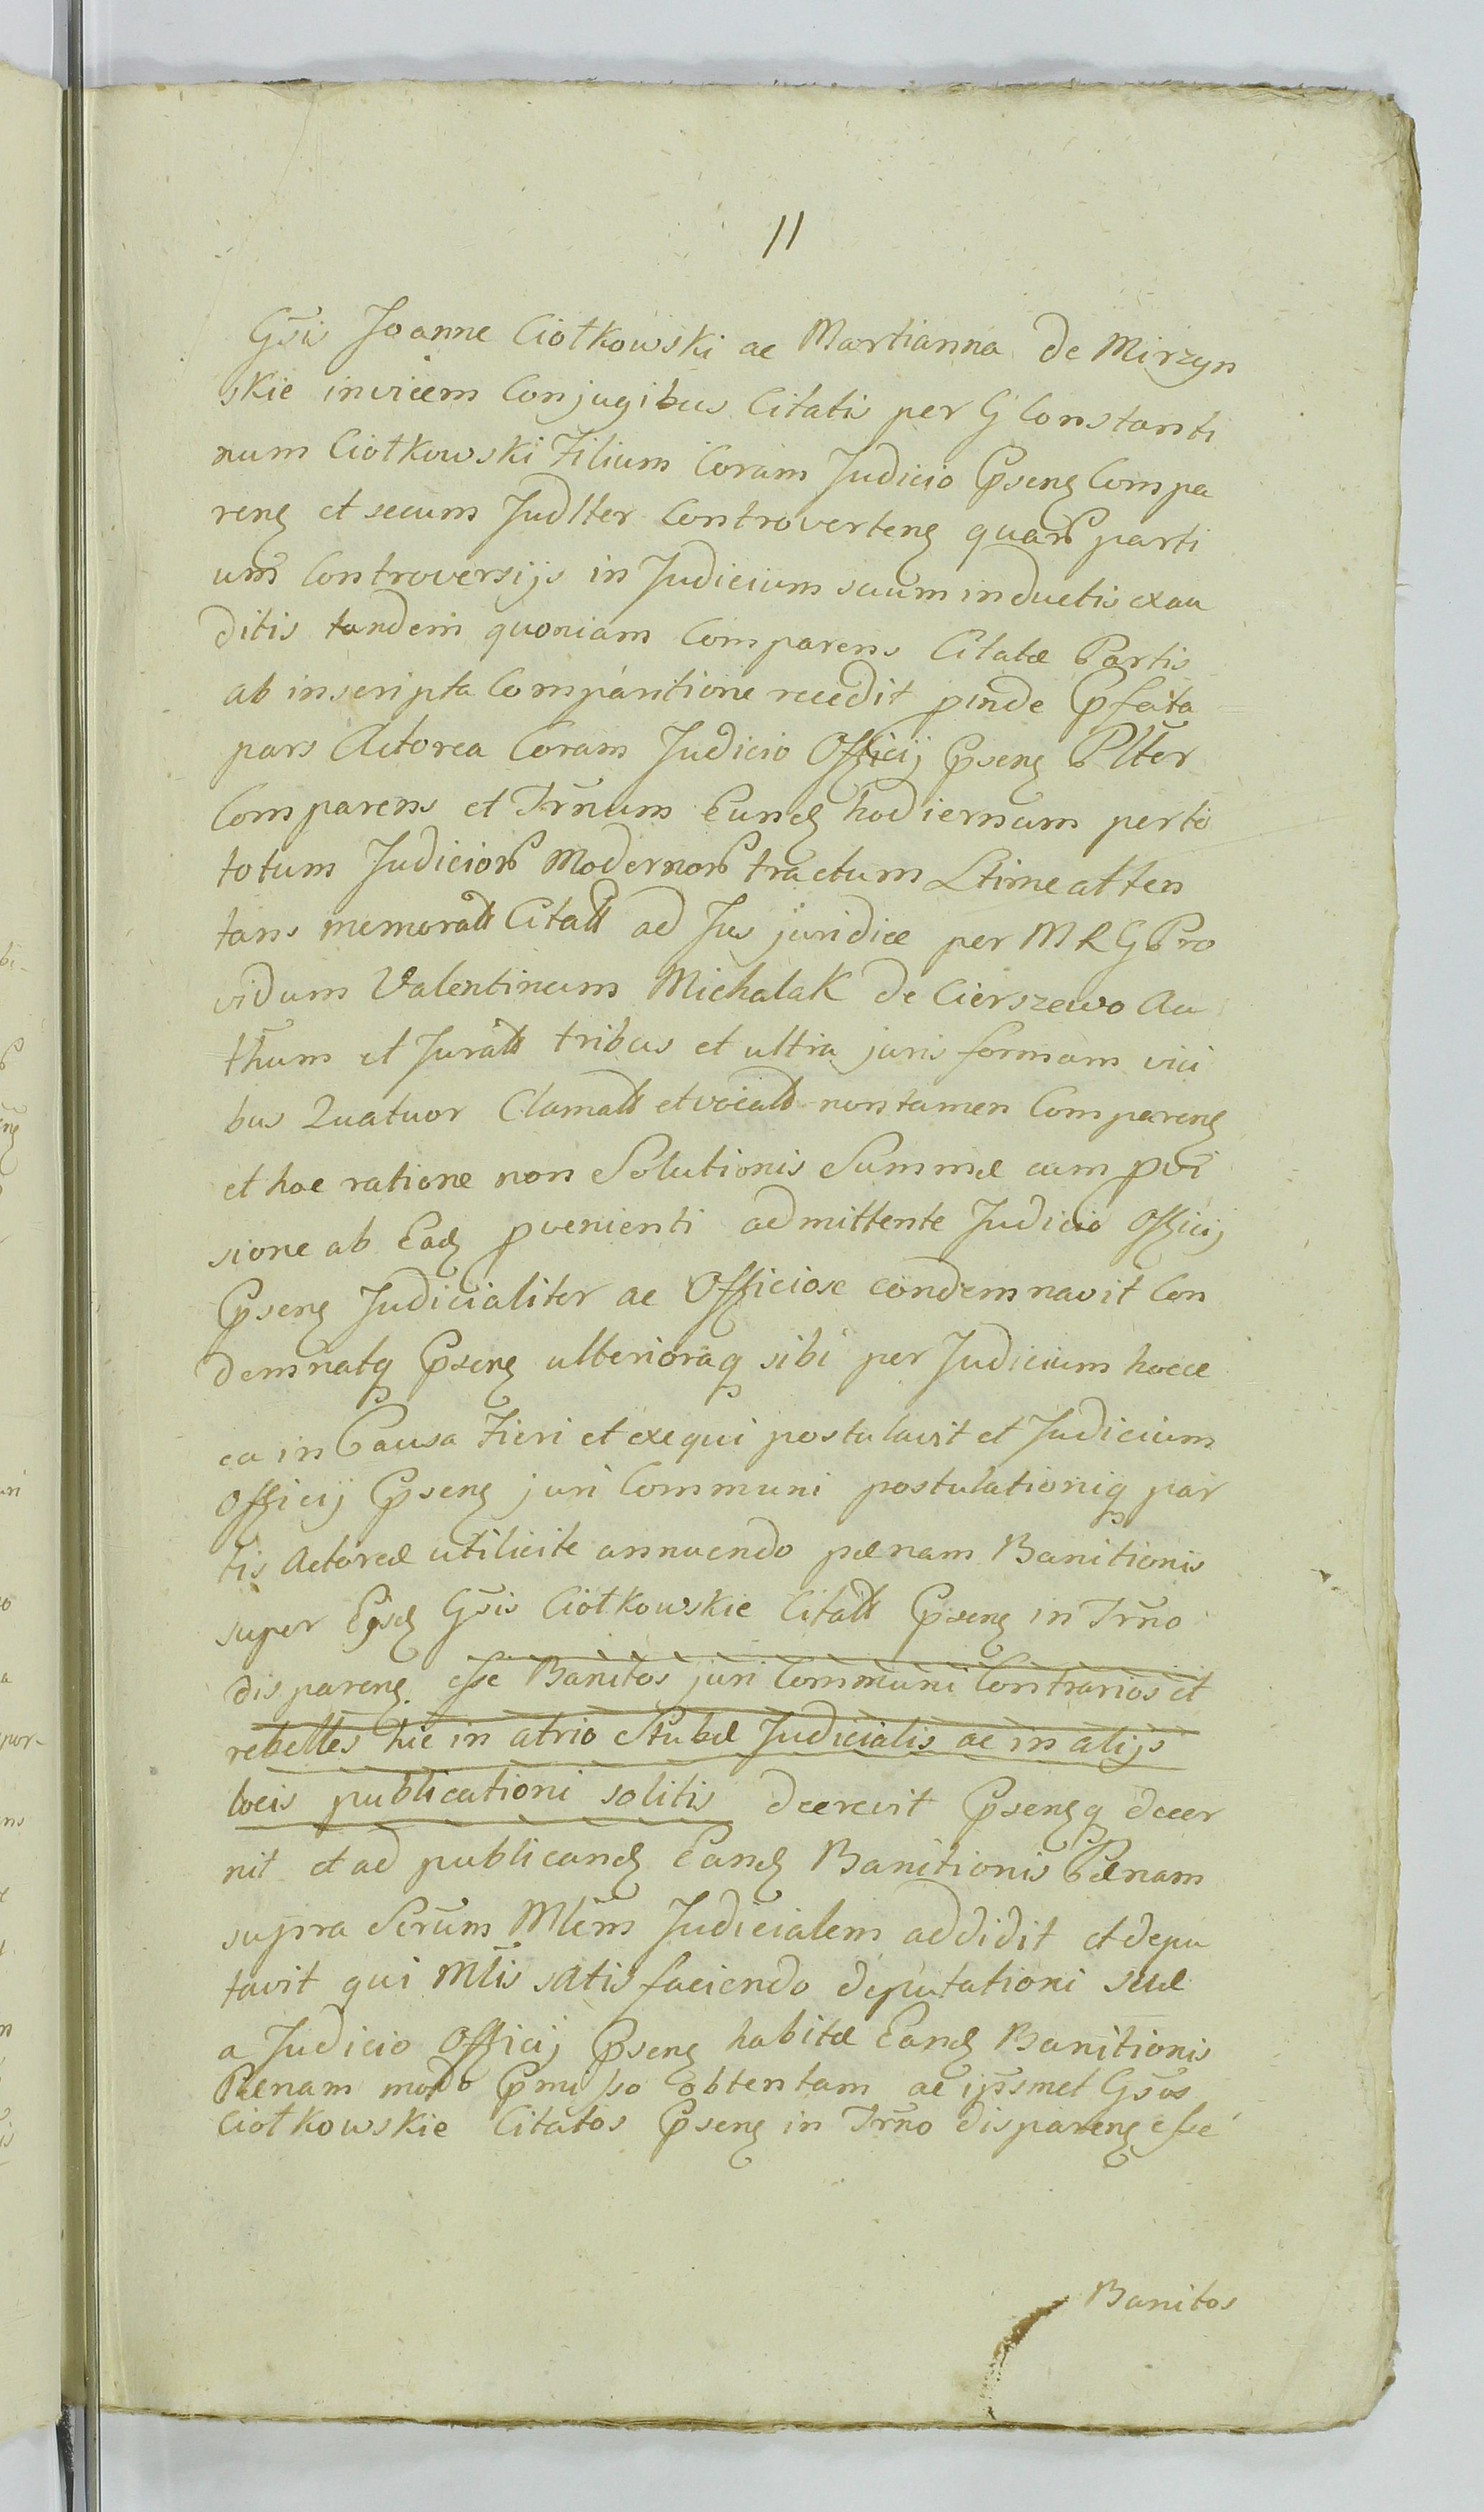 11
Gs̃is Joanne Ciołkowski ac Martianna de Mirzyn
skie invicem Conjugibus Citatis per G Constanti
num Ciołkowski Filium Coram Judicio Pṣenꝫ Compa
renꝫ et secum Judlter Controvertenꝫ quarꝫ parti
um Controversijs in Judicium suum inductis exau
ditis tandem quoniam Comparens Citatæ Partis
ab inscripta Comparitione recedit pinde Pfata
pars Actorea Coram Judicio Officij Psenꝫ Plter
Comparens et Trñum Eundꝫ hodiernum perto
totum Judiciorꝫ Modernorꝫ tractum Ltime atten
tans memoratt Citatt ad Jus juridice per M R G Pro
vidum Valentinum Michalak de Cierszewo Au
thum et Juratt tribus et ultra juris formam vici
bus Quatuor Clamatt et vocatt non tamen Comparenꝫ
et hoc ratione non Solutionis Summæ cum pvi
sione ab Eadꝫ pvenienti admittente Judicio Officij
Psenꝫ Judicialiter ac Officiose condemnavit Con
demnatq Psenꝫ ulterioraq sibi per Judicium hocce
ea in Causa Fieri et exequi postulavit et Judicium
Officij Psenꝫ juri Communi postulationiq par
tis Actoreæ utilicite annuendo pænam Banitionis
super Eisdꝫ Gs̃is Ciołkowskie Citatt Psenꝫ in Trño
disparenꝫ esse Banitos juri Communi Contrarios et
rebelles hic in atrio Stubæ Judicialis ac in alijs
locis publicationi solitis decrevit Psenꝫq decer
nit et ad publicandꝫ Eandꝫ Banitionis Pænam
supra Scrum Mlẽm Judicialem addidit et depu
tavit qui Mlis satis faciendo deputationi suæ
a Judicio Officij Psenꝫ habitæ Eandꝫ Banitionis
Pænam modo Pmisso obtentam ac ip̃smet Gs̃os
Ciołkowskie Citatos Psenꝫ in Trño disparenꝫ esse
Banitos